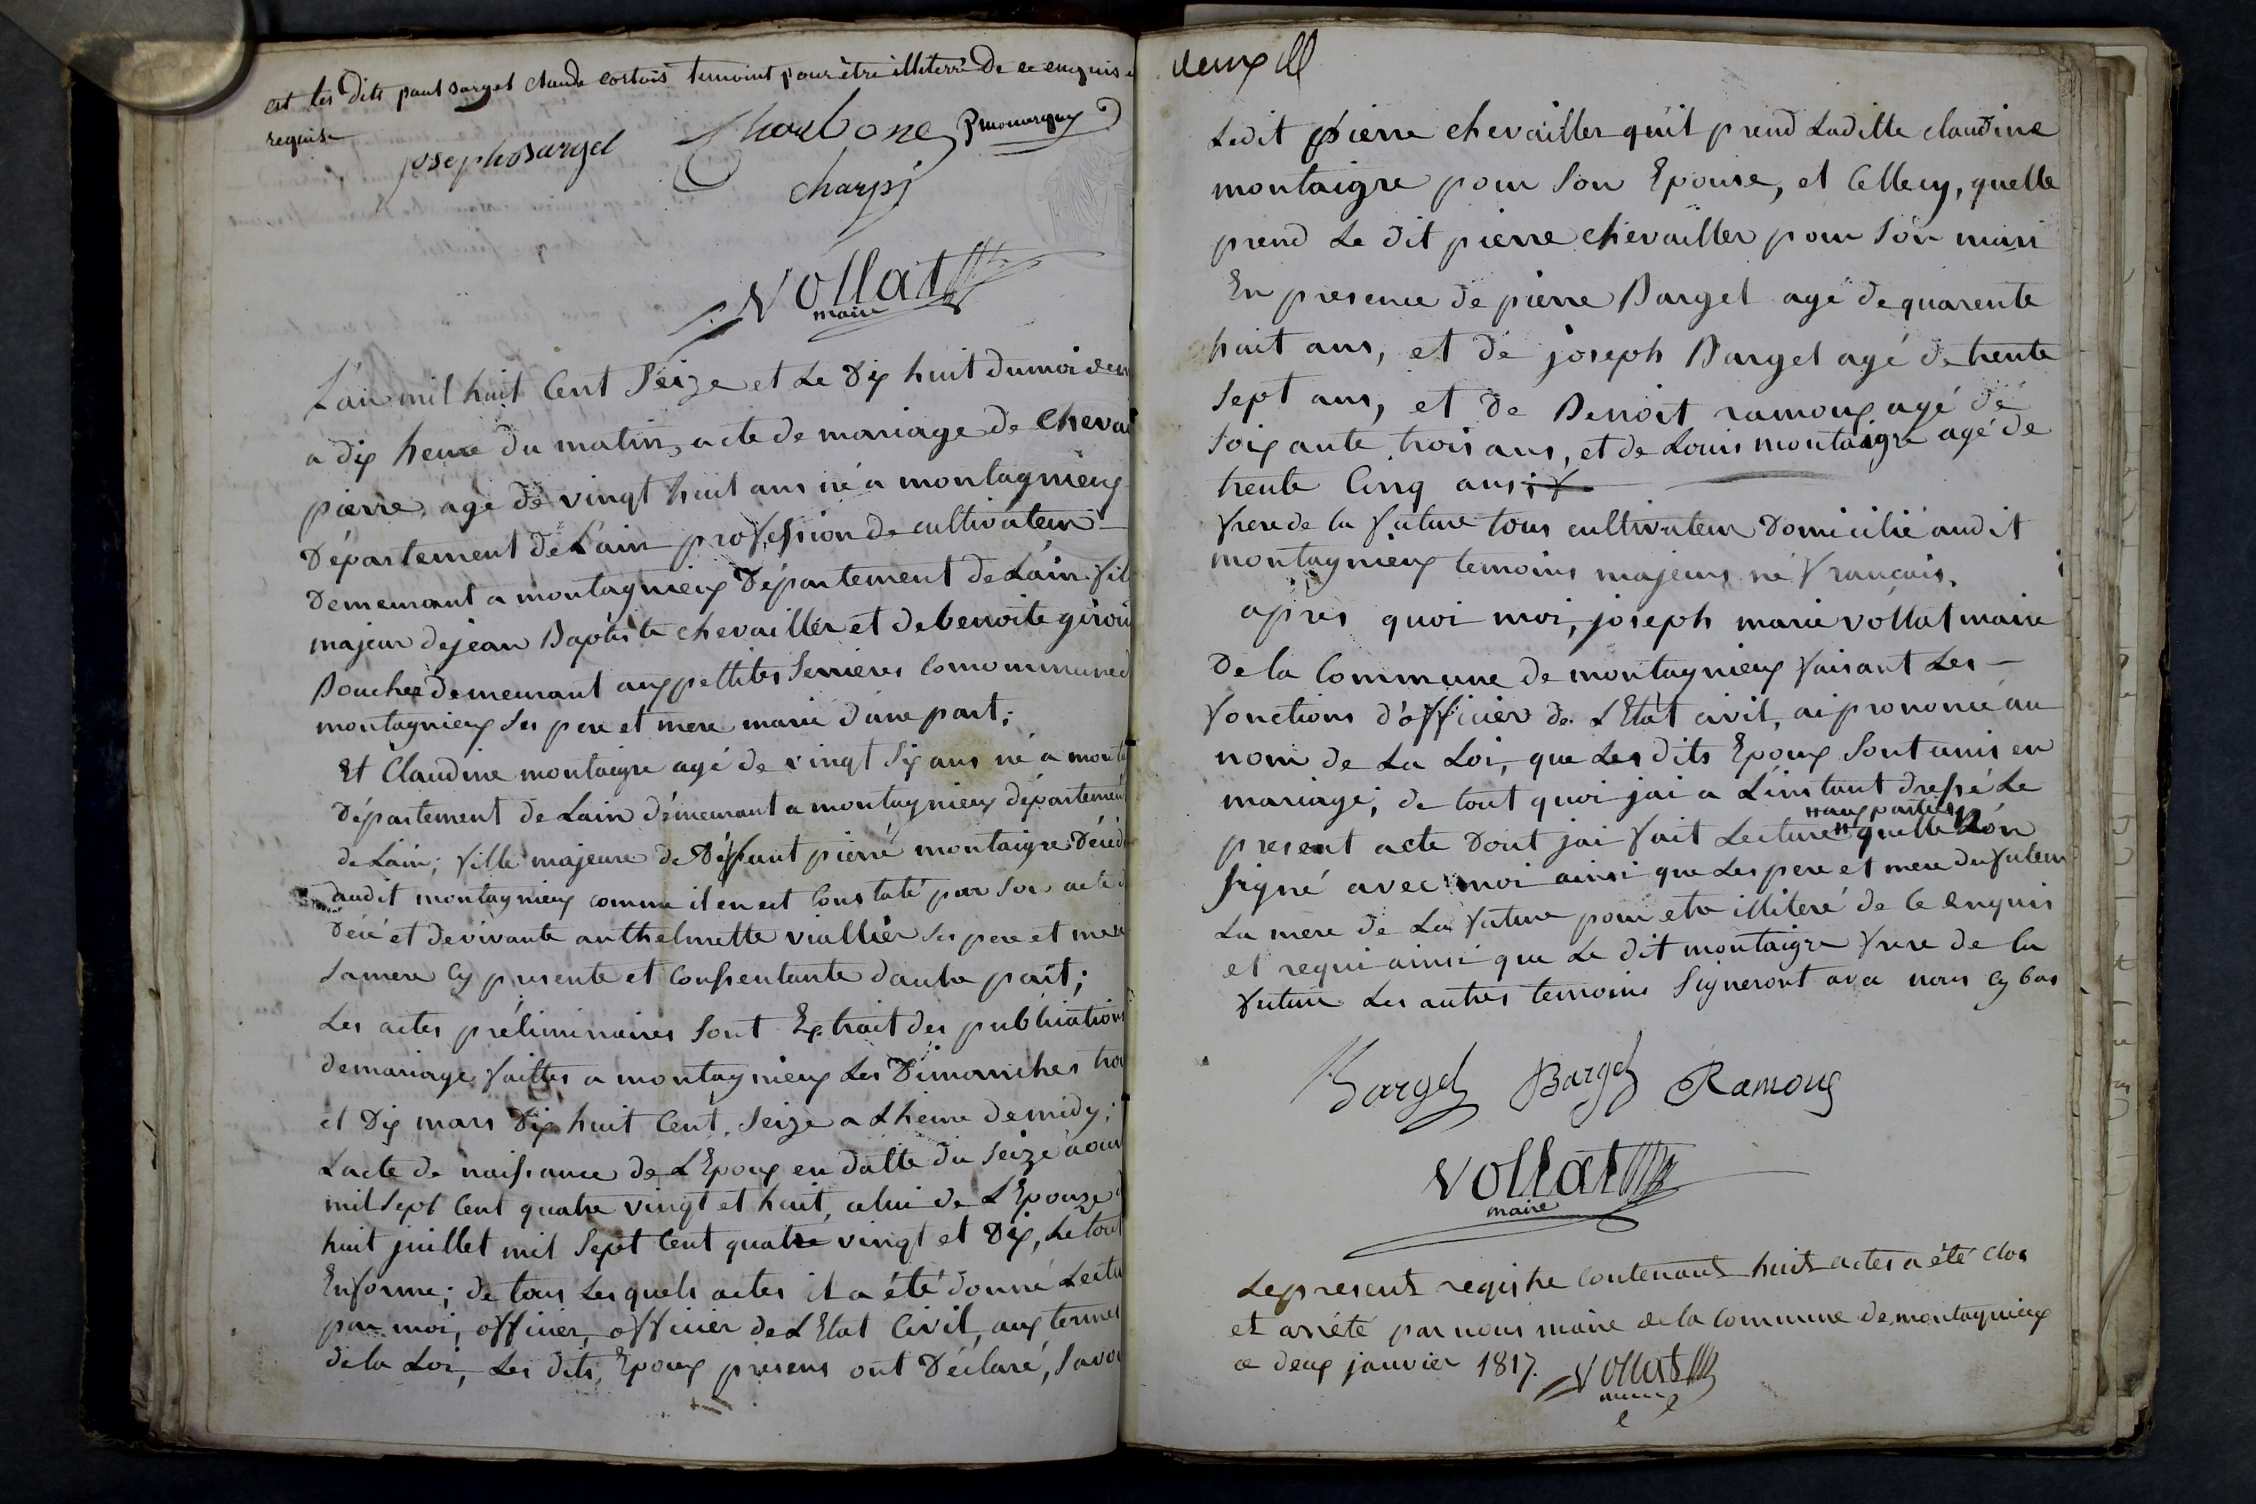 et les dits paul Bargel claude cortois temoint pour être illiterré de ce enquis
requise
joseph Bargel Charbone Pmontagny
charpi
Vollat
maire
L'an mil huit Cent Seize et Le Dix huit du moi de
a dix heure du matin, acte de mariage de Cheva
pierre, agé de vingt huit ans né a montagnieux
Département de L'ain profession de cultivateur
Demeurant a montagnieux Département de L'ain fil
majeur de jean Baptiste chevaillér et de benoite girou
Bouchez demeurant aux pettites Serrieres Comommune d
montagnieux Ses pere et mere marié d'une part;
Et Claudine montaigre agé de vingt Six ans né a monta
Département de Lain démeurant a montagnieux départemen
de Lain; fille majeure de Défunt pierre montaigre Décéd
audit montagnieux comme il en est Constaté par Son acte d
Décé et de vivante anthelmette viallier Ses pere et mere
Samere Cy presente et Consentante dautre part;
Les actes préliminaires Sont Extrait des publications
de mariage faittes a montagnieux Les Dimanches troi
et Dix mars Dix huit Cent Seize a Lheure de midy;
Lacte de naissance de L'Epoux en datte du Seize aout
mil Sept Cent quatre vingt et huit, celui de L'Epouze d
huit juillet mil Sept Cent quatre vingt et Dix, Le tout
En forme; de tous Les quels actes il a été donné Lectu
par moi, officier, officier de L'Etat Civil, aux termes
de la Loi, Les dits Epoux presens ont Déclaré, Savoi
deux
Ledit pierre chevailler qu'il prend Laditte claudine
montaigre pour Son Epouse, et Cellecy, quelle
prend Le dit pierre chevailler pour Son mari
En presence de pierre Bargel agé de quarente
huit ans, et de joseph Bargel agé de trente
Sept ans, et de Benoit ramoux agé de
Soixante trois ans, et de Louis montaigre agé de
trente Cinq ans
frere de la future tous cultivateur Domicilié audit
montagnieux temoins majeurs né français.
après quoi moi, joseph marie vollat maire
De la Commune de montagnieux faisant Les
fonctions d'officier de L'Etat civil, ai prononcé au
nom de La Loi, que Les dits Epoux Sont unis en
mariage; de tout quoi jai a L'instant dressé Le
aux parties
present acte Dont jai fait Lecture quelle non
Signé avec moi ainsi que Les pere et mere du futeur
La mere de La future pour etre illiteré de Ce enquis
et requi ainsi que Le dit montaigre frere de la
future Les autres temoins Signeront avec nous Cy bas
Bargel Bargel Ramoux
Vollat
maire
Le present registre Contenant huit actes a été clos
et arrété par nous maire de la Commune de montagnieux
ce deux janvier 1817. Vollat
maire